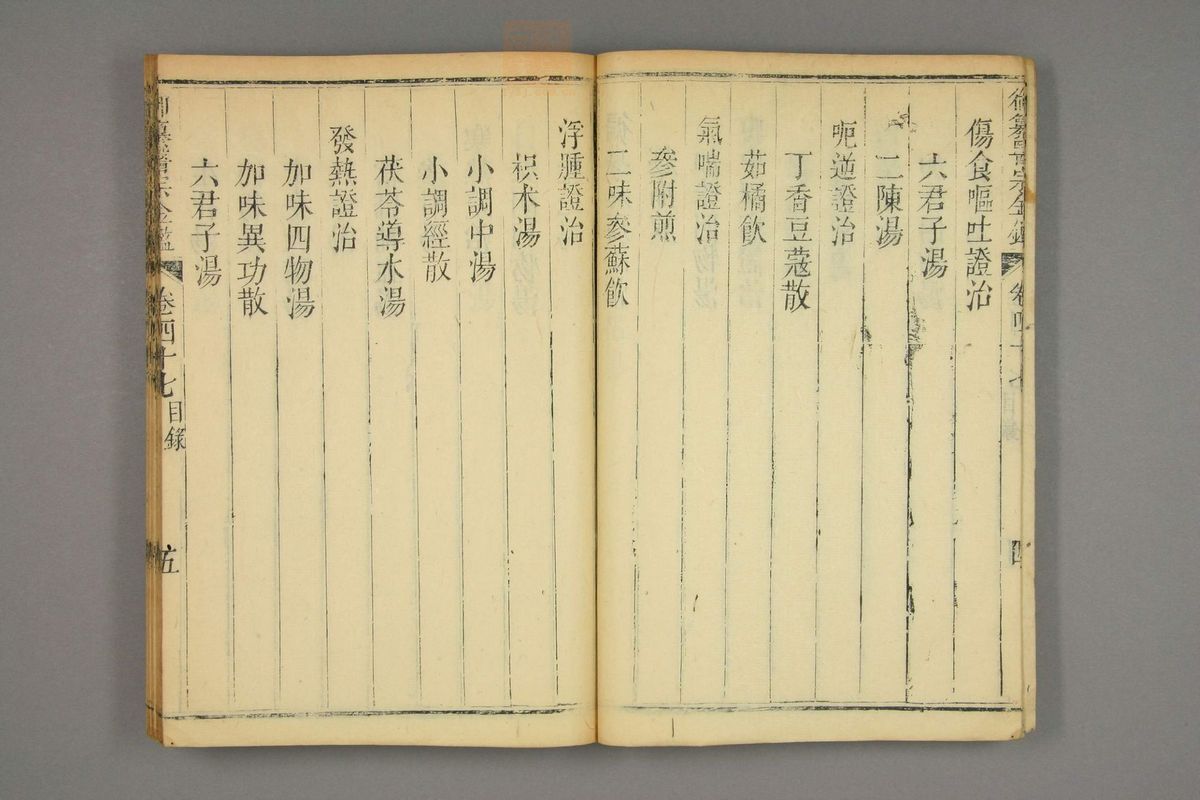 御纂醫宗金鑑 卷四十七 目錄 四
傷食嘔吐證治
六君子湯
二陳湯
呃逆證治
丁香豆蔻散
茹橘飲
氣喘證治
參附煎
二味參蘇飲
浮腫證治
枳术湯
小調中湯
小調經散
茯苓導水湯
發熱證治
加味四物湯
加味異功散
六君子湯
御纂醫宗金鑑 卷四十七 目錄 五